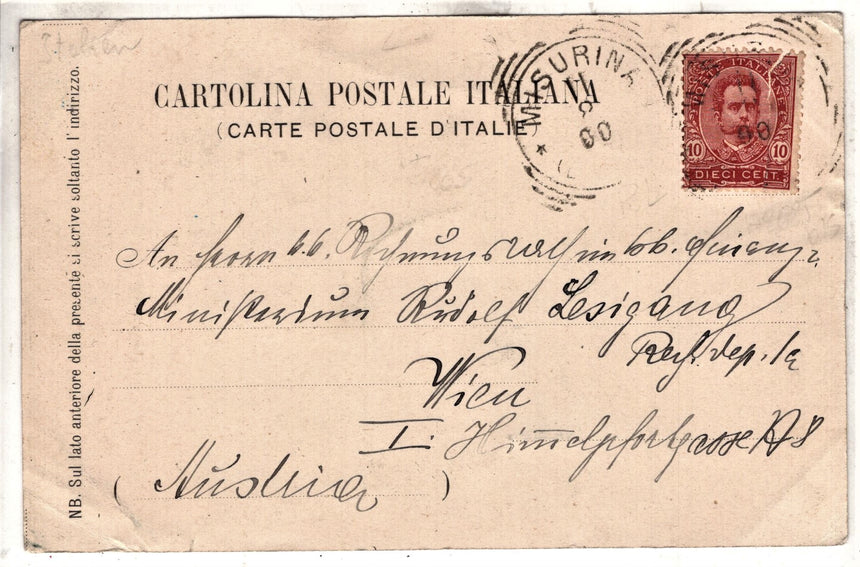 Italien
CARTOLINA POSTALE ITALIANA
(CARTE POSTALE D'ITALIE)
MISURINA
11
8
00
POSTE ITALIANE
10 10
DIECI CENT.
00
An Herrn k.k. Rechnungsrath im k.k. Finanz-
Ministerium Rudolf Lesigang
Rech. dep. Ia
Wien
I. Himmelpfortgasse No 8
(Austria)
NB. Sul lato anteriore della presente si scrive soltanto l'indirizzo.